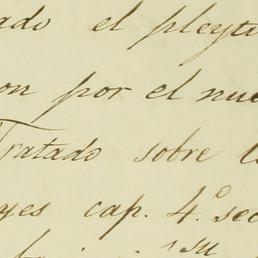 ado el pleyt
on por el nue
Tratado sobre l
yes cap. 4.º sec